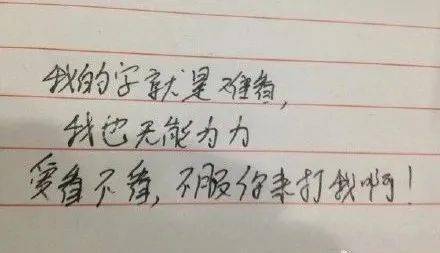 我的字就是难看,
我也无能为力
爱看不看,不服你来打我啊!